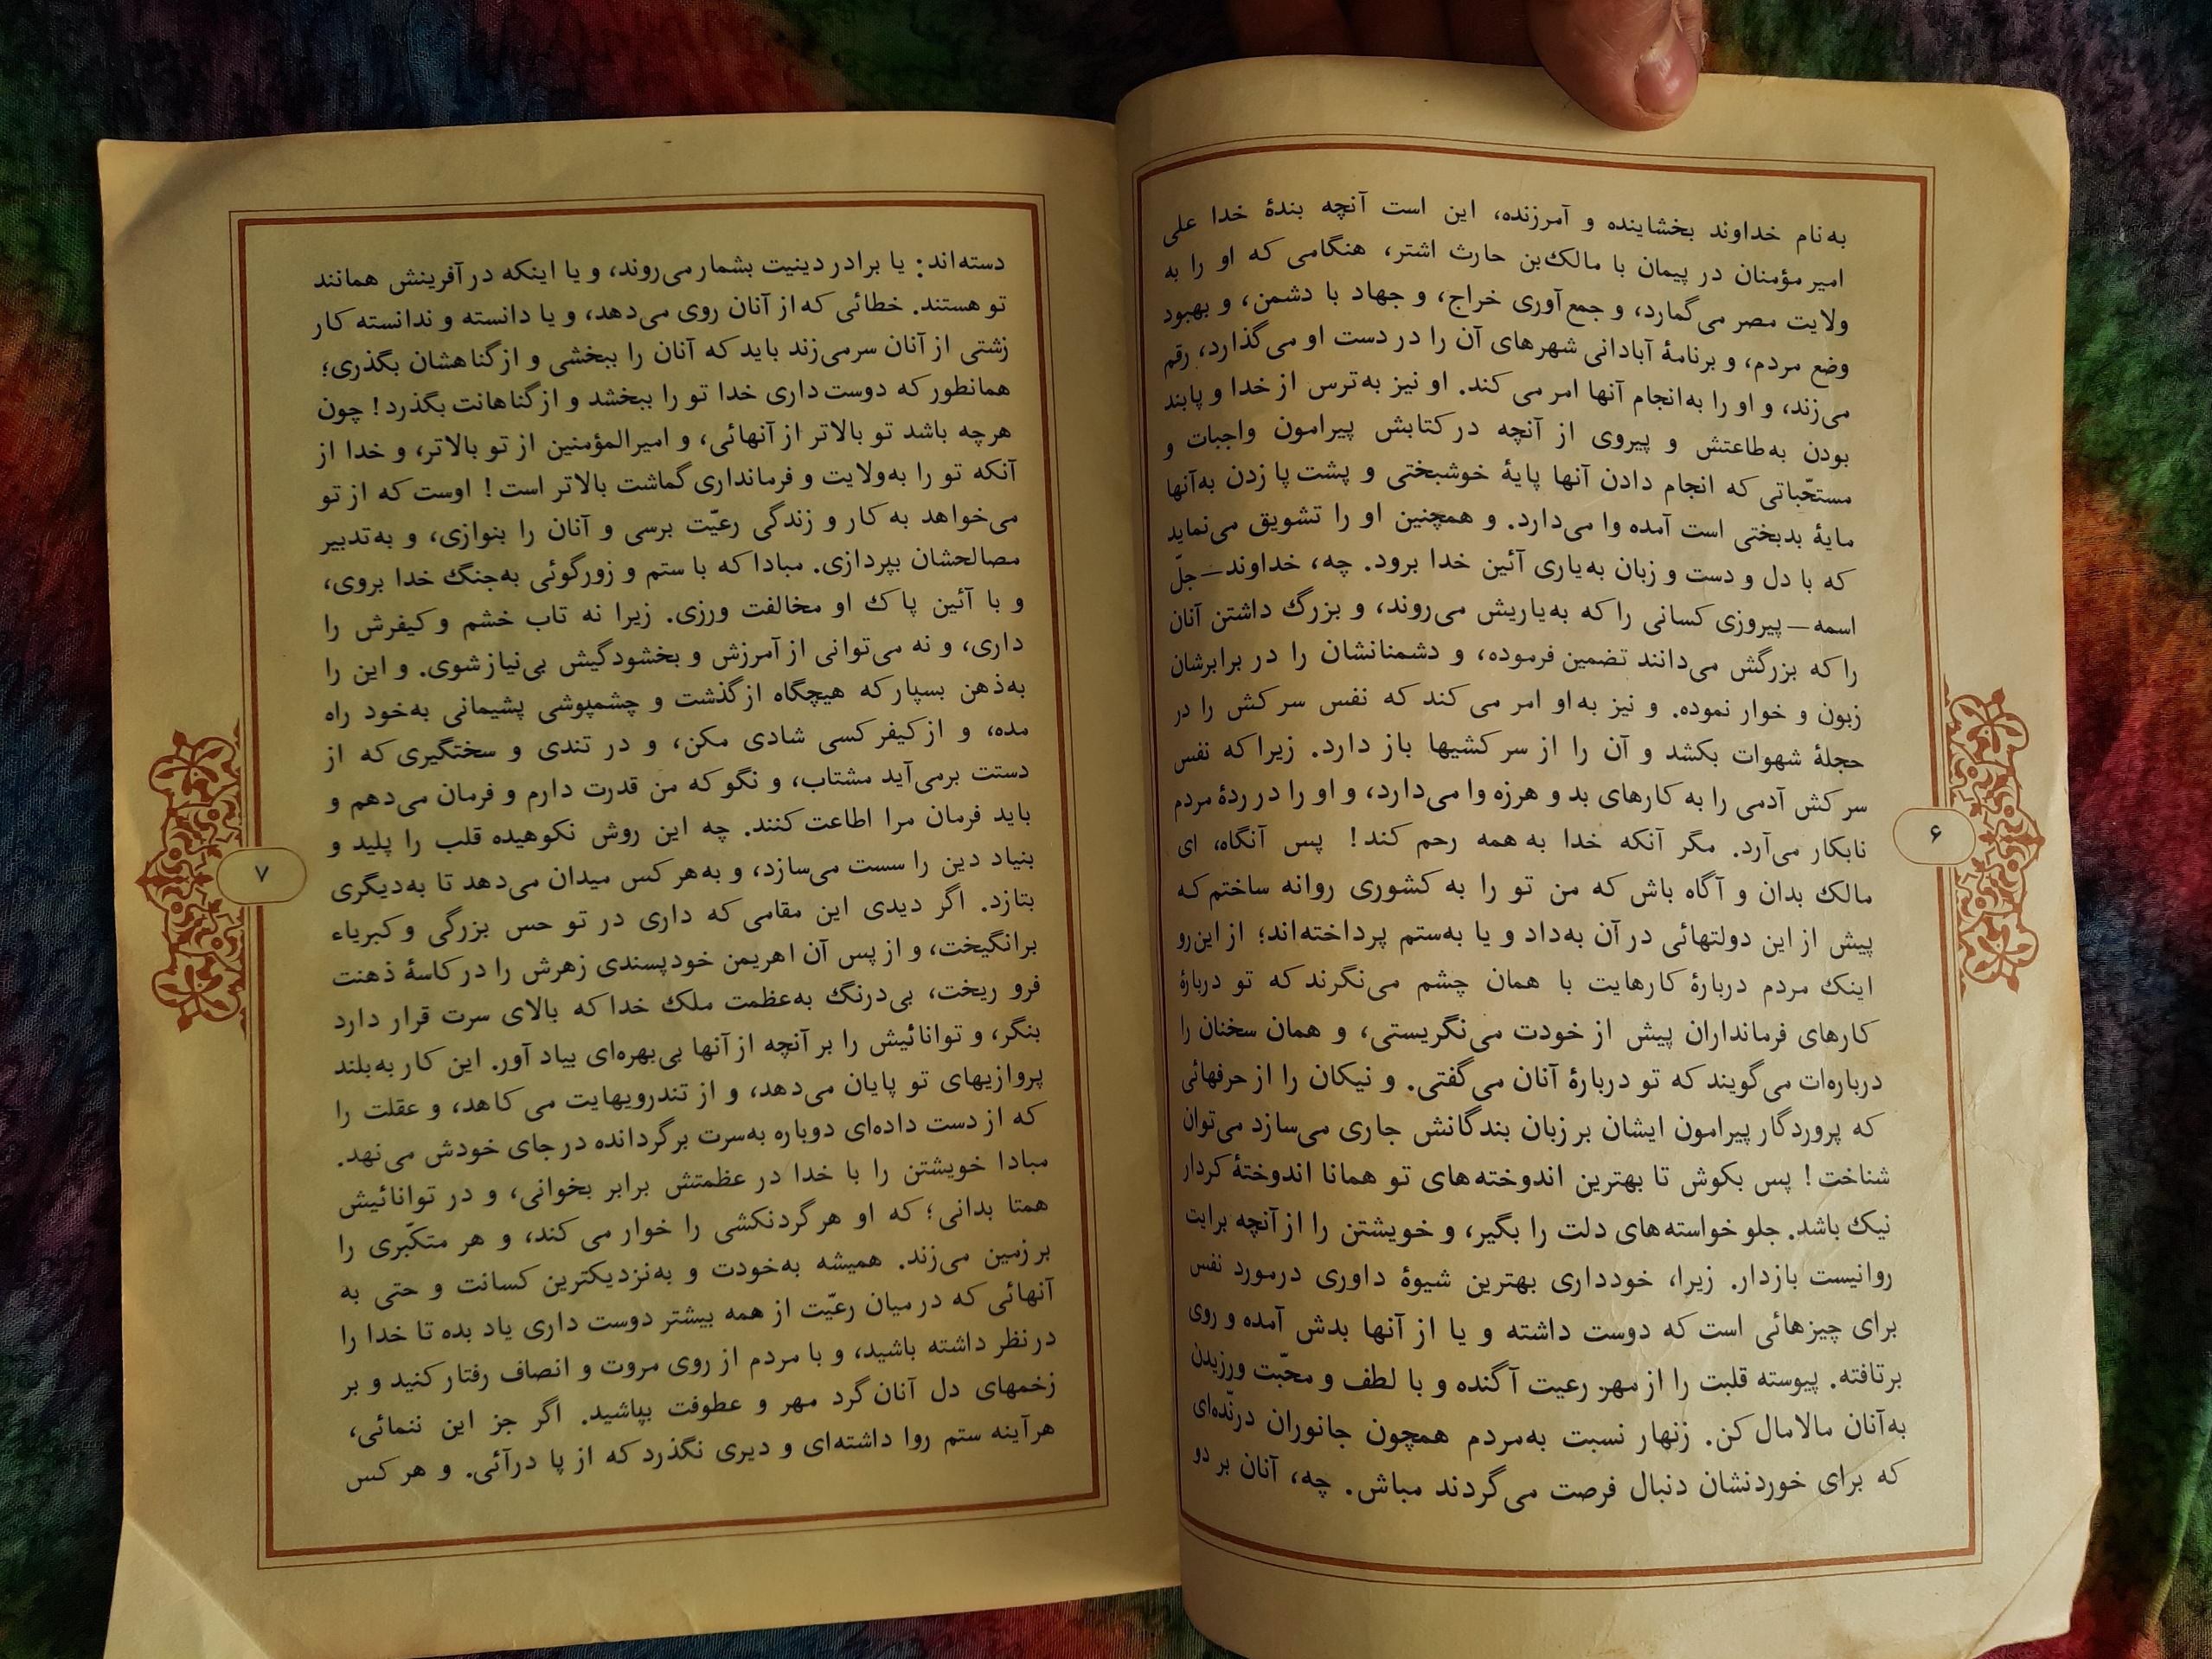 به‌نام خداوند بخشاینده و آمرزنده، این است آنچه بندهٔ خدا علی
امیر مؤمنان در پیمان با مالک‌بن حارث اشتر، هنگامی که او را به
ولایت مصر می‌گمارد، و جمع‌آوری خراج، و جهاد با دشمن، و بهبود
وضع مردم، و برنامهٔ آبادانی شهرهای آن را در دست او می‌گذارد، رقم
می‌زند، و او را به‌انجام آنها امر می‌کند. او نیز به‌ترس از خدا و پابند
بودن به‌طاعتش و پیروی از آنچه در کتابش پیرامون واجبات و
مستحّباتی که انجام دادن آنها پایهٔ خوشبختی و پشت پا زدن به‌آنها
مایهٔ بدبختی است آمده وا می‌دارد. و همچنین او را تشویق می‌نماید
که با دل و دست و زبان به‌یاری آئین خدا برود. چه، خداوند—جلّ
اسمه—پیروزی کسانی را که به‌یاریش می‌روند، و بزرگ داشتن آنان
را که بزرگش می‌دانند تضمین فرموده، و دشمنانشان را در برابرشان
زبون و خوار نموده. و نیز به‌او امر می‌کند که نفس سرکش را در
حجلهٔ شهوات بکشد و آن را از سرکشیها باز دارد. زیرا که نفس
سرکش آدمی را به کارهای بد و هرزه وا می‌دارد، و او را در ردهٔ مردم
نابکار می‌آرد. مگر آنکه خدا به همه رحم کند! پس آنگاه، ای
مالک بدان و آگاه باش که من تو را به کشوری روانه ساختم که
پیش از این دولتهائی در آن به‌داد و یا به‌ستم پرداخته‌اند؛ از این‌رو
اینک مردم دربارهٔ کارهایت با همان چشم می‌نگرند که تو دربارهٔ
کارهای فرمانداران پیش از خودت می‌نگریستی، و همان سخنان را
درباره‌ات می‌گویند که تو دربارهٔ آنان می‌گفتی. و نیکان را از حرفهائی
که پروردگار پیرامون ایشان بر زبان بندگانش جاری می‌سازد می‌توان
شناخت! پس بکوش تا بهترین اندوخته‌های تو همانا اندوختهٔ کردار
نیک باشد. جلو خواسته‌های دلت را بگیر، و خویشتن را از آنچه برایت
روانیست بازدار. زیرا، خودداری بهترین شیوهٔ داوری درمورد نفس
برای چیزهائی است که دوست داشته و یا از آنها بدش آمده و روی
برتافته. پیوسته قلبت را از مهر رعیت آگنده و با لطف و محبّت ورزیدن
به‌آنان مالامال کن. زنهار نسبت به‌مردم همچون جانوران درنّده‌ای
که برای خوردنشان دنبال فرصت می‌گردند مباش. چه، آنان بر دو
۶
دسته‌اند: یا برادر دینیت بشمار می‌روند، و یا اینکه در آفرینش همانند
تو هستند. خطائی که از آنان روی می‌دهد، و یا دانسته و ندانسته کار
زشتی از آنان سرمی‌زند باید که آنان را ببخشی و از گناهشان بگذری؛
همانطور که دوست داری خدا تو را ببخشد و از گناهانت بگذرد! چون
هرچه باشد تو بالاتر از آنهائی، و امیرالمؤمنین از تو بالاتر، و خدا از
آنکه تو را به‌ولایت و فرمانداری گماشت بالاتر است! اوست که از تو
می‌خواهد به کار و زندگی رعیّت برسی و آنان را بنوازی، و به‌تدبیر
مصالحشان بپردازی. مبادا که با ستم و زورگوئی به‌جنگ خدا بروی،
و با آئین پاک او مخالفت ورزی. زیرا نه تاب خشم و کیفرش را
داری، و نه می‌توانی از آمرزش و بخشودگیش بی‌نیاز شوی. و این را
به‌ذهن بسپار که هیچگاه از گذشت و چشمپوشی پشیمانی به‌خود راه
مده، و از کیفر کسی شادی مکن، و در تندی و سختگیری که از
دستت برمی‌آید مشتاب، و نگو که من قدرت دارم و فرمان می‌دهم و
باید فرمان مرا اطاعت کنند. چه این روش نکوهیده قلب را پلید و
بنیاد دین را سست می‌سازد، و به‌هر کس میدان می‌دهد تا به‌دیگری
بتازد. اگر دیدی این مقامی که داری در تو حس بزرگی و کبریاء
برانگیخت، و از پس آن اهریمن خودپسندی زهرش را در کاسهٔ ذهنت
فرو ریخت، بی‌درنگ به‌عظمت ملک خدا که بالای سرت قرار دارد
بنگر، و توانائیش را بر آنچه از آنها بی‌بهره‌ای بیاد آور. این کار به‌بلند
پروازیهای تو پایان می‌دهد، و از تندرویهایت می‌کاهد، و عقلت را
که از دست داده‌ای دوباره به‌سرت برگردانده در جای خودش می‌نهد.
مبادا خویشتن را با خدا در عظمتش برابر بخوانی، و در توانائیش
همتا بدانی؛ که او هر گردنکشی را خوار می‌کند، و هر متکّبری را
بر زمین می‌زند. همیشه به‌خودت و به‌نزدیکترین کسانت و حتی به
آنهائی که در میان رعیّت از همه بیشتر دوست داری یاد بده تا خدا را
در نظر داشته باشید، و با مردم از روی مروت و انصاف رفتار کنید و بر
زخمهای دل آنان گرد مهر و عطوفت بپاشید. اگر جز این ننمائی،
هرآینه ستم روا داشته‌ای و دیری نگذرد که از پا درآئی. و هر کس
۷